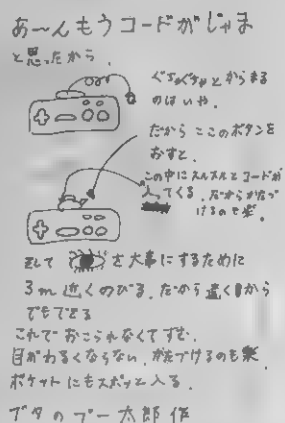 あ～んもうコードがじゃま
と思ったから.
ぐちゃぐちゃとからまる
のはいや.
だからここのボタンを
おすと.
この中にスルスルとコードが
入ってくる.だからかたづ
けるのも楽.
そして を大事にするために
3m近くのびる.だから遠くからでもできる
これでおこられなくてすむ.
目がわるくならない.かたづけるのも楽.
ポケットにもスポッと入る.
ブタのブー太郎作